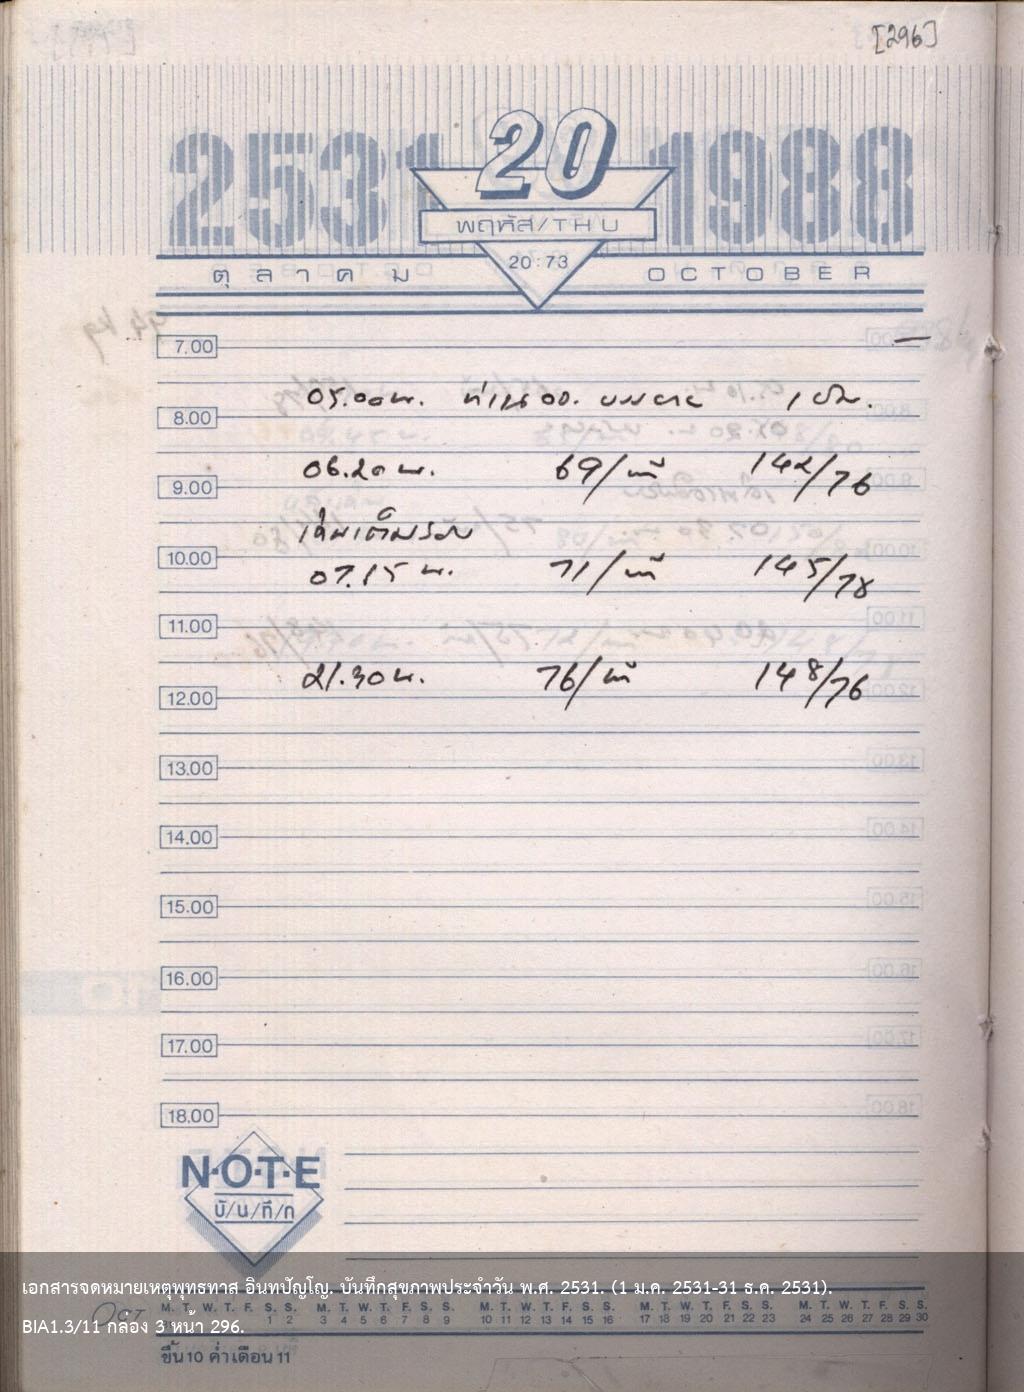 [296]
2531 20 1988
พฤหัส/THU
20:73
ตุลาคม OCTOBER
7.00
05.00 น. 1 ชม.
8.00
06.20 น. 69/นาที 142/76
9.00
10.00
07.15 น. 71/นาที 145/78
11.00
21.30 น. 76/นาที 148/76
12.00
13.00
14.00
15.00
16.00
17.00
18.00
N·O·T·E
บั/น/ทึ/ก
เอกสารจดหมายเหตุพุทธทาส อินทปัญโญ. บันทึกสุขภาพประจำวัน พ.ศ. 2531. (1 ม.ค. 2531-31 ธ.ค. 2531).
OCT M. T. W. T. F. S. S. M. T. W. T. F. S. S. M. T. W. T. F. S. S. M. T. W. T. F. S. S. M. T. W. T. F. S. S.
1 2 3 4 5 6 7 8 9 10 11 12 13 14 15 16 17 18 19 20 21 22 23 24 25 26 27 28 29 30
BIA1.3/11 กล่อง 3 หน้า 296.
ขึ้น 10 ค่ำ เดือน 11